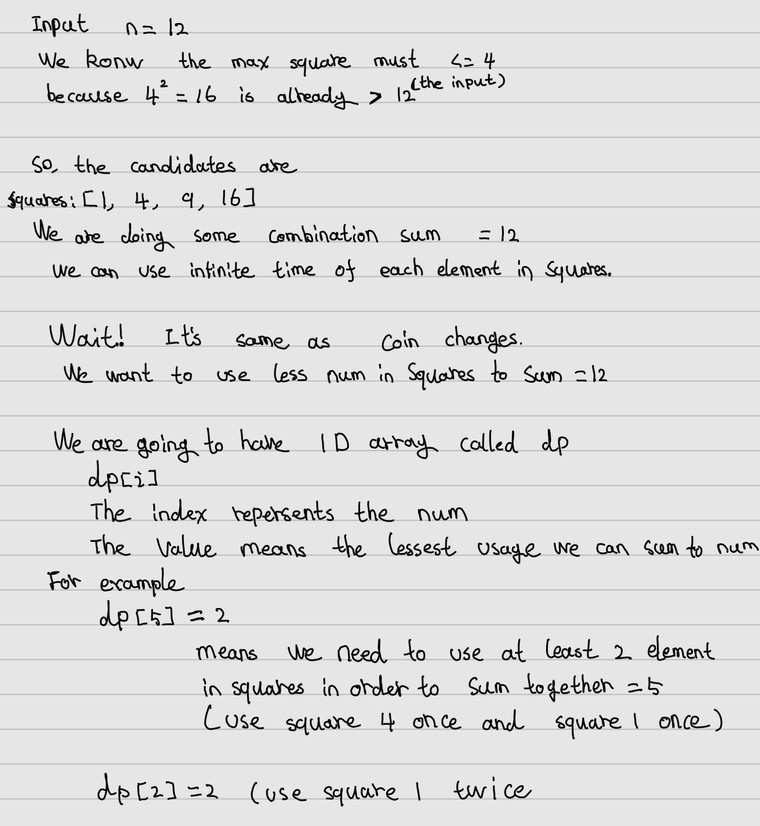 Input n = 12
We konw the max square must <= 4
because 4² = 16 is already > 12 (the input)
So, the candidates are
squares: [1, 4, 9, 16]
We are doing some combination sum = 12
we can use infinite time of each element in squares.
Wait! It's same as coin changes.
We want to use less num in Squares to sum = 12
We are going to have 1D array called dp
dp[i]
The index repersents the num
The value means the lessest usage we can sum to num
For example
dp[5] = 2
means we need to use at least 2 element
in squares in order to sum together = 5
(use square 4 once and square 1 once)
dp[2] = 2 (use square 1 twice